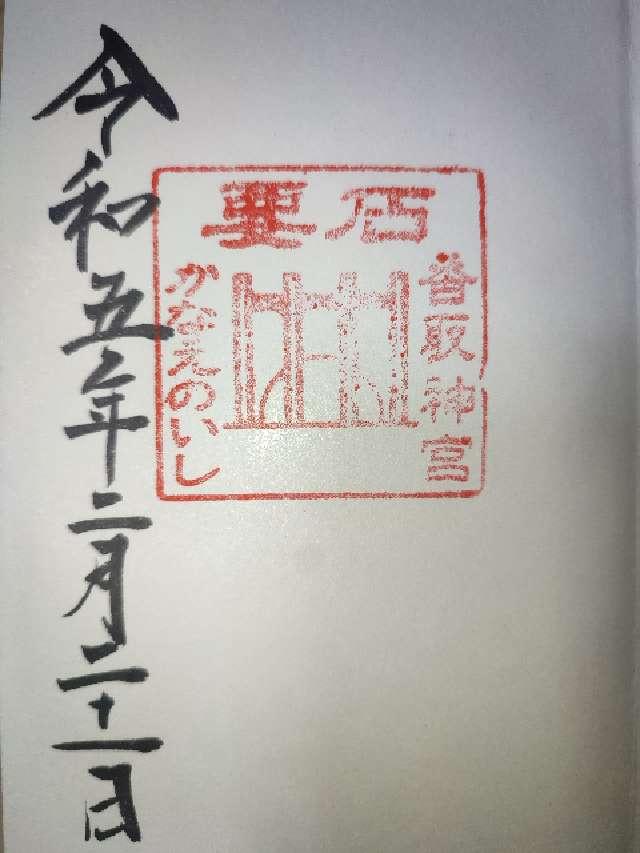 要石
香取神宮
かなえのいし
令和五年二月二十一日